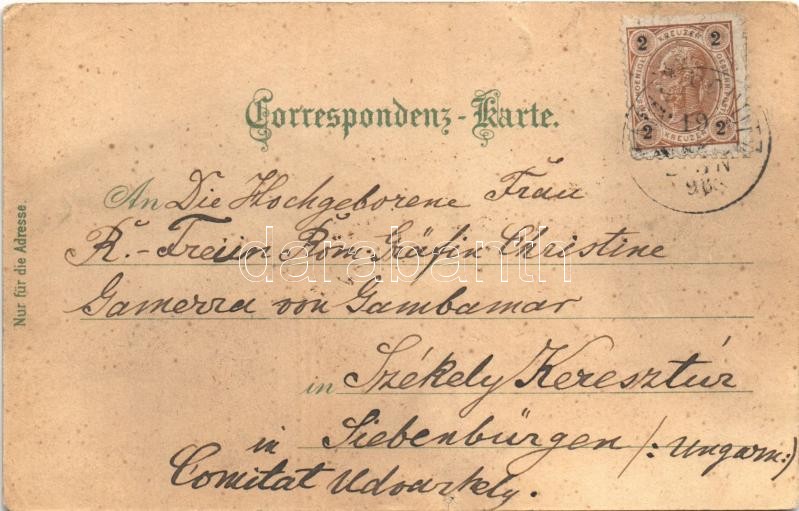 Correspondenz-Karte.
An Die Hochgeborene Frau
R.-Freiin Röm. Gräfin Christine
Gamerra von Gambamar
in Székely Keresztúr
in Siebenbürgen /: Ungarn:/
Comitat Udvarhely.
Nur für die Adresse.
2 KREUZER 2
2 KREUZER 2
19
98
darabanth